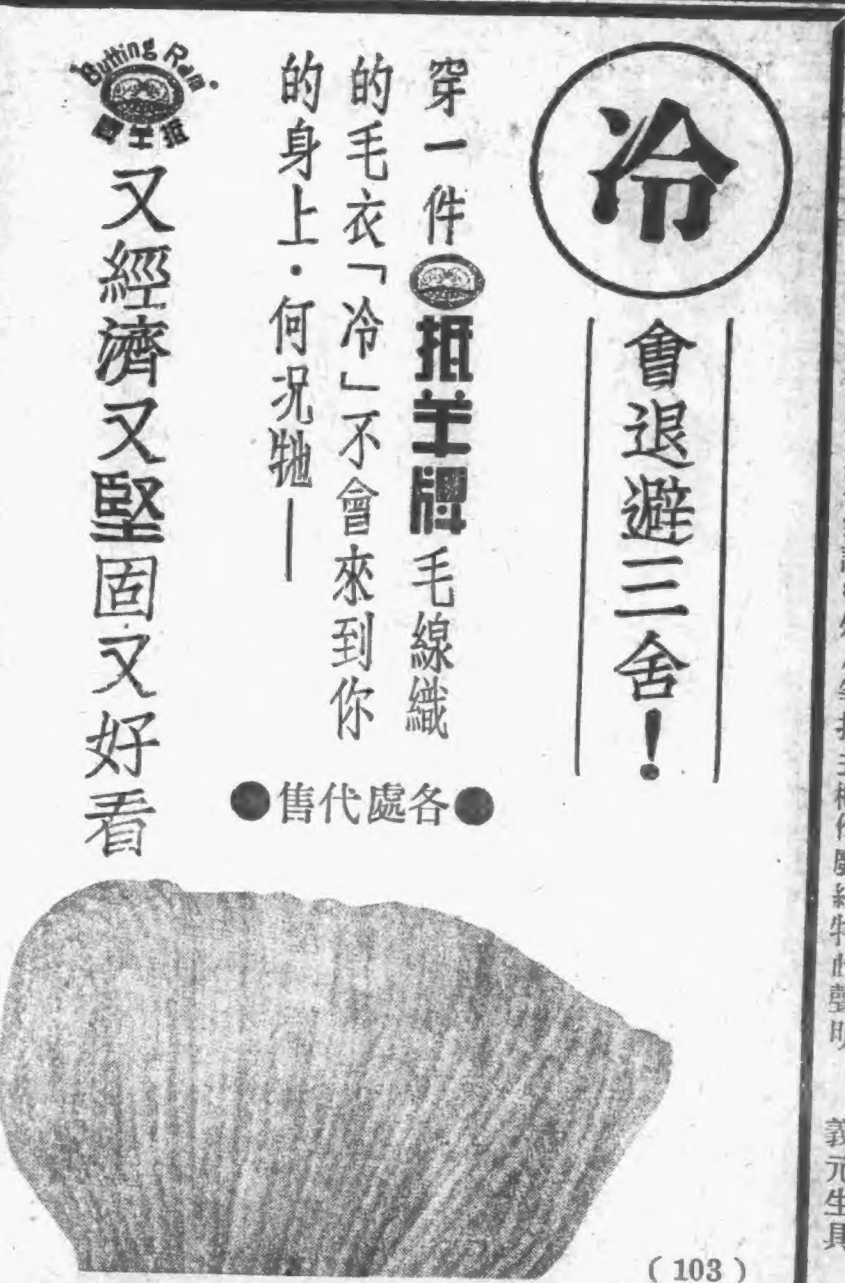 冷
會退避三舍！
穿一件抵羊牌毛線織
的毛衣「冷」不會來到你
的身上・何況牠——
●各處代售●
Butting Ram
抵羊牌
又經濟又堅固又好看
( 103 )
特此聲明
義元生具